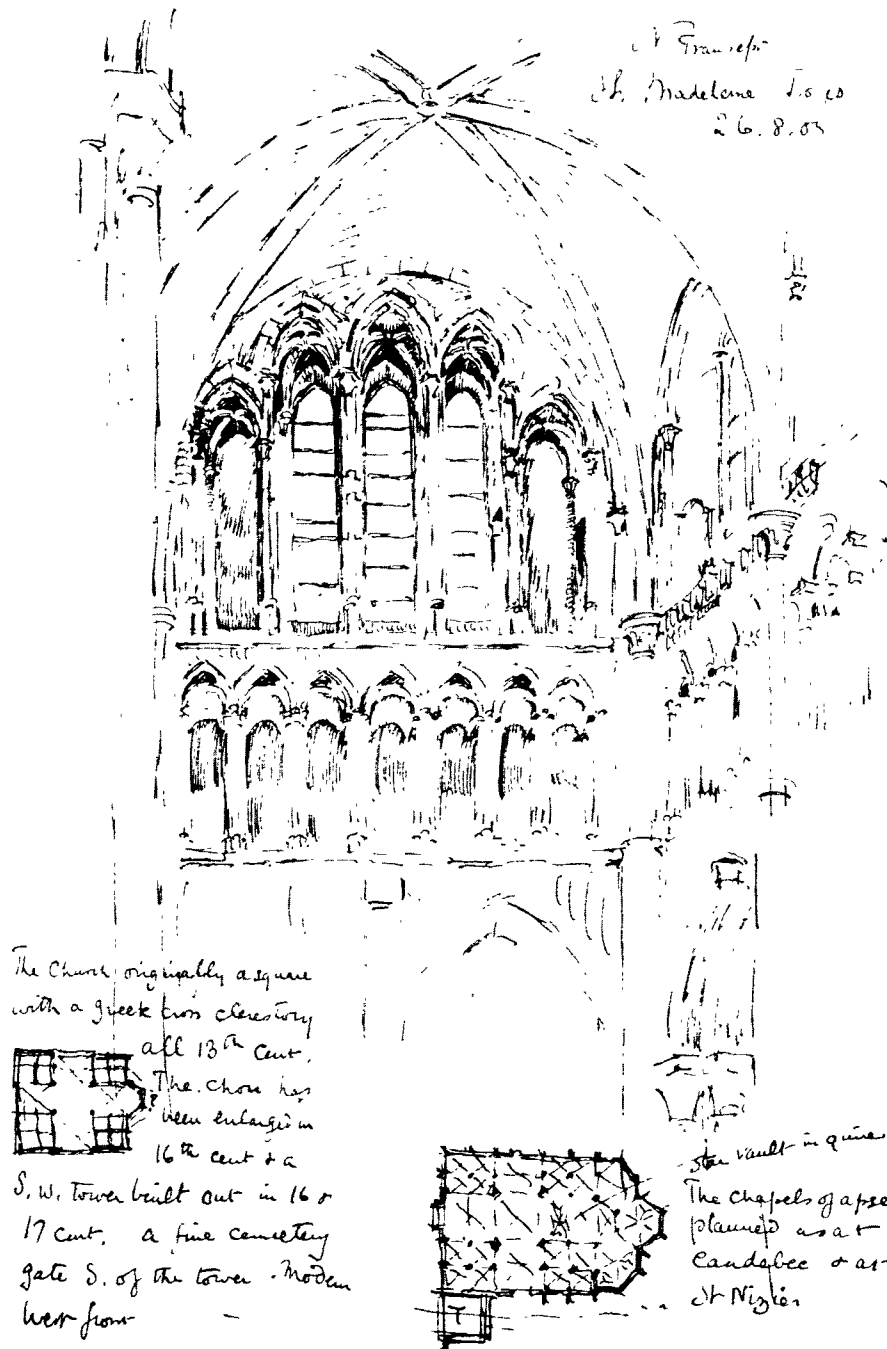 N Transept
St. Madeleine Troyes
26.8.03
The Church originally a square
with a greek cross clerestory
all 13th Cent.
The choir has
been enlarged in
16th cent & a
S.W. Tower built out in 16 &
17 cent. a fine cemetery
gate S. of the tower. Modern
West front
T
star vault in
The chapels of apse
planned as at
Caudebec & as at
St Nizier